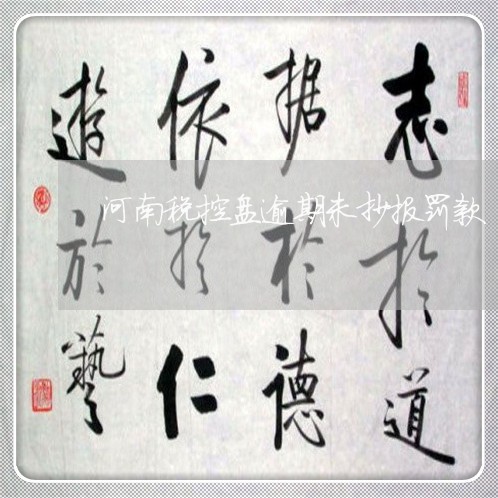 志於道
据於德
依於仁
遊於藝
河南税控盘逾期未抄报罚款